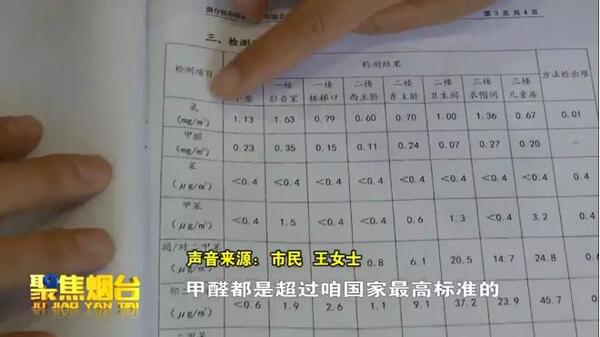 第 3 页 共 4 页
三、检测
检测项目 检测结果 方法检出限
一楼 一楼 二楼 二楼 二楼 三楼 三楼
影音室 楼梯口 西主卧 东主卧 卫生间 衣帽间 儿童房
氨
(mg/m³) 1.13 1.63 0.79 0.60 0.70 1.00 1.36 0.67 0.01
甲醛
(mg/m³) 0.23 0.35 0.15 0.11 0.24 0.07 0.27 0.20 -
苯
(μg/m³) <0.4 <0.4 <0.4 <0.4 <0.4 <0.4 <0.4 <0.4 0.4
甲苯
(μg/m³) <0.4 1.5 <0.4 <0.4 0.6 1.3 <0.4 3.2 0.4
间/对二甲苯 0.8 6.1 20.5 14.7 24.8 0.
声音来源：市民 王女士
聚焦烟台
JU JIAO YAN TAI
甲醛都是超过咱国家最高标准的
<0.6 1.9 2.6 1.1 9.1 37.2 23.9 45.7 0.
(μg/m³)